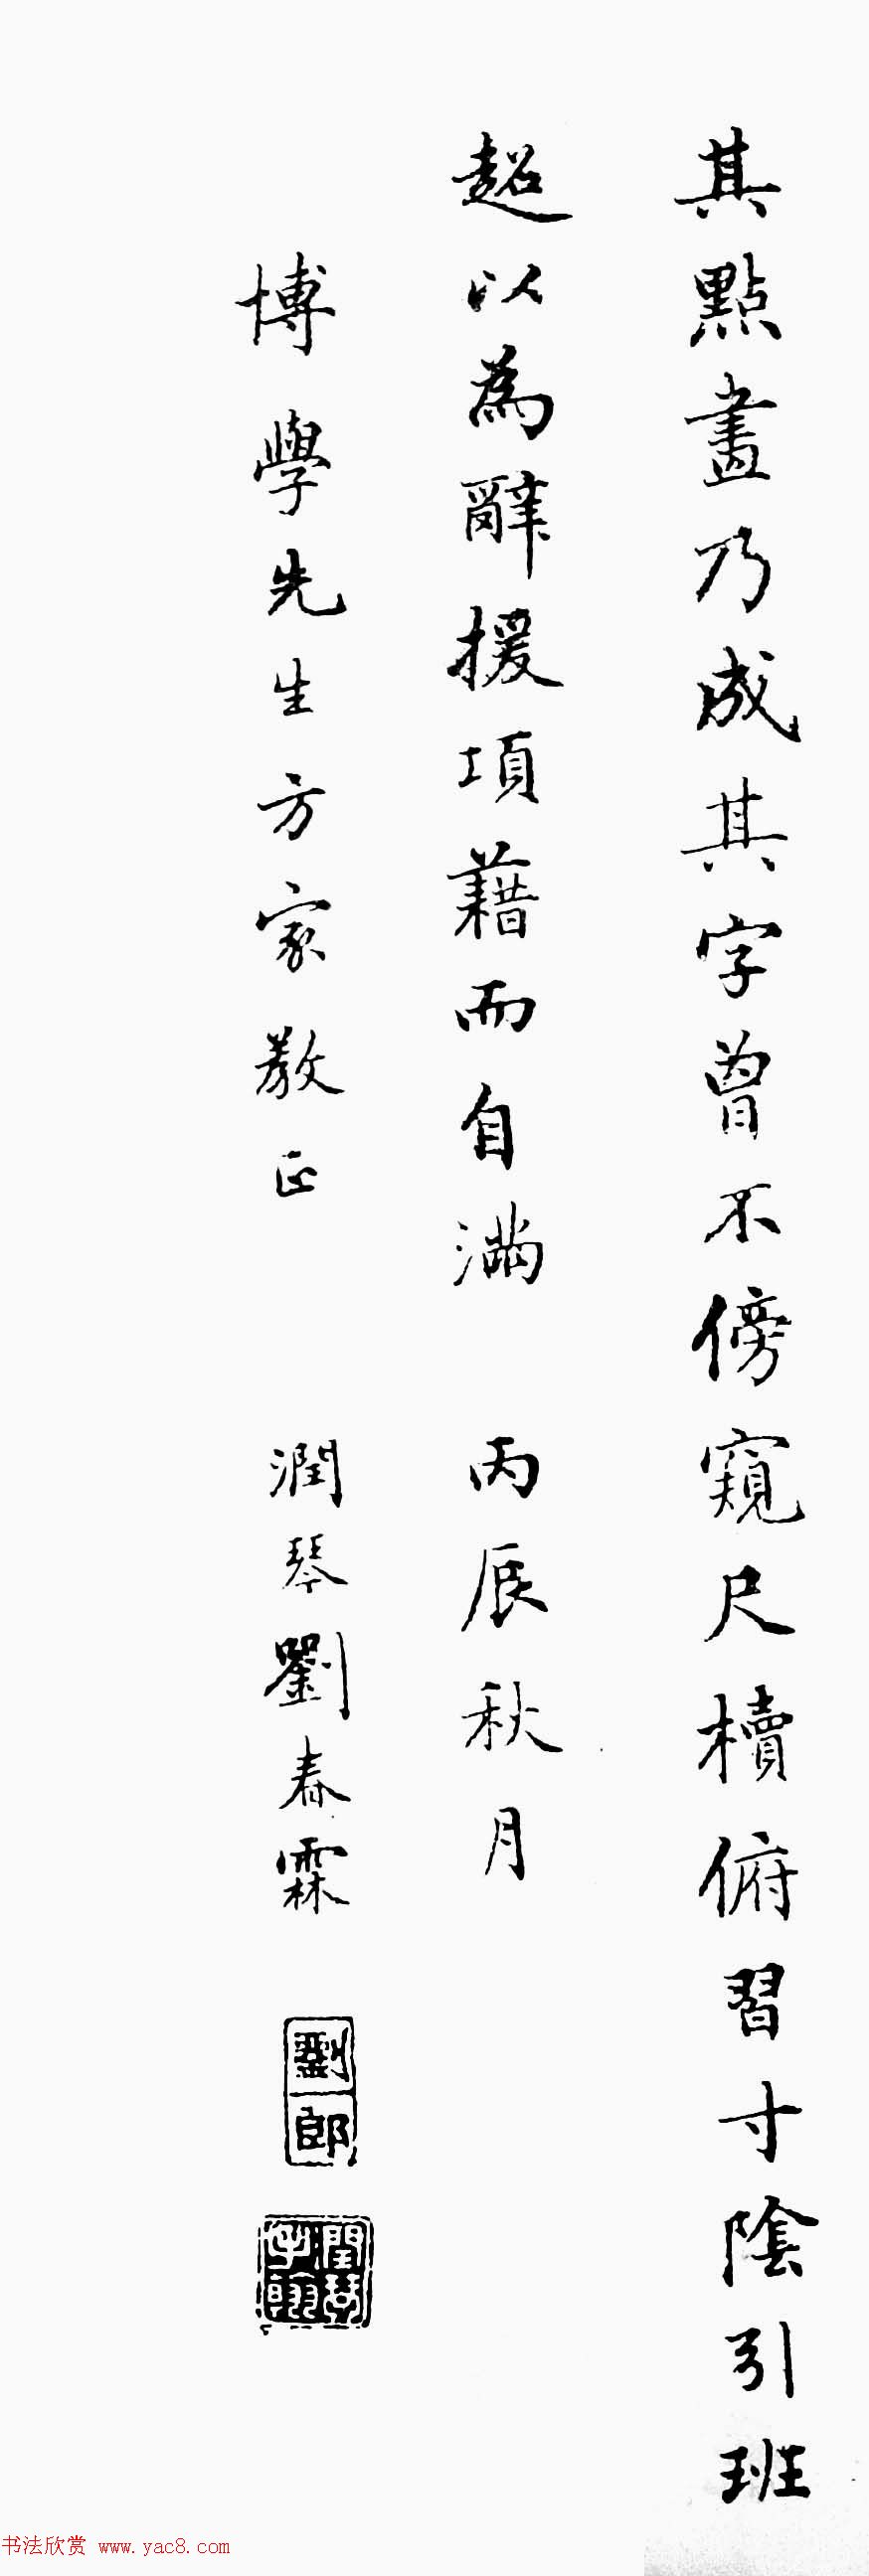 其點畫乃成其字曾不傍窺尺櫝俯習寸陰引班
超以為辭援項藉而自滿 丙辰秋月
博學先生方家教正 潤琴劉春霖
劉郎
潤琴
书法欣赏 www.yac8.com